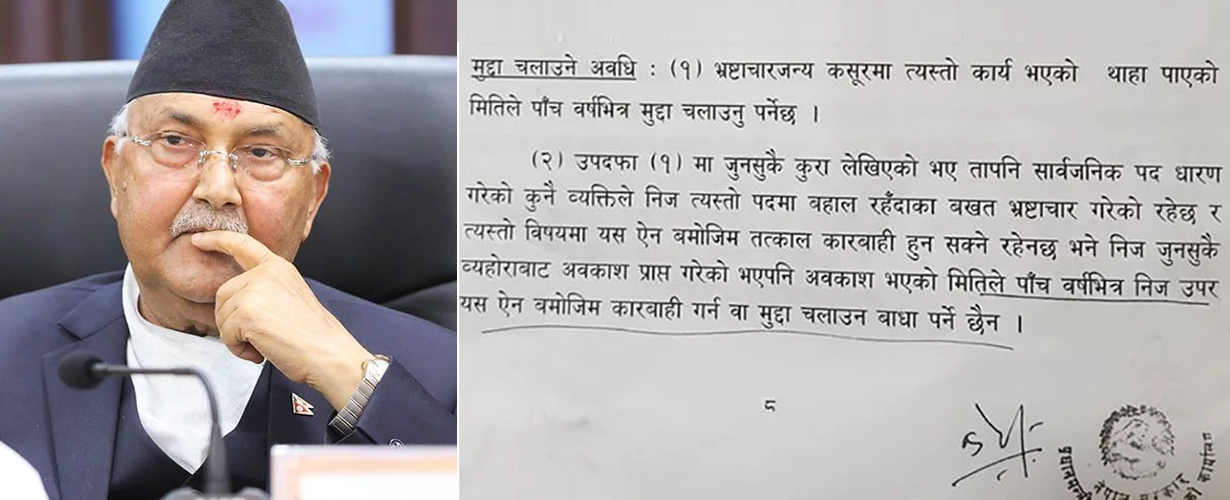 मुद्दा चलाउने अवधि : (१) भ्रष्टाचारजन्य कसूरमा त्यस्तो कार्य भएको थाहा पाएको
मितिले पाँच वर्षभित्र मुद्दा चलाउनु पर्नेछ ।
(२) उपदफा (१) मा जुनसुकै कुरा लेखिएको भए तापनि सार्वजनिक पद धारण
गरेको कुनै व्यक्तिले निज त्यस्तो पदमा बहाल रहँदाका बखत भ्रष्टाचार गरेको रहेछ र
त्यस्तो विषयमा यस ऐन बमोजिम तत्काल कारबाही हुन सक्ने रहेनछ भने निज जुनसुकै
व्यहोराबाट अवकाश प्राप्त गरेको भएपनि अवकाश भएको मितिले पाँच वर्षभित्र निज उपर
यस ऐन बमोजिम कारबाही गर्न वा मुद्दा चलाउन बाधा पर्ने छैन ।
८